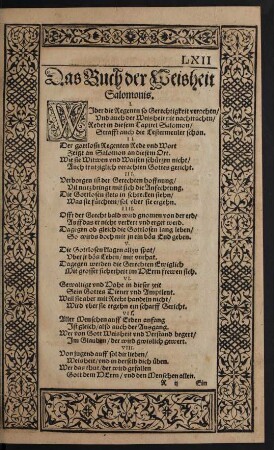 LXII
Das Buch der Weisheit
Salomonis.
I.
WIder die Regenten so Gerechtigkeit verzehen/
Und auch der Weisheit nit nachtrachten/
Redet in diesem Capitel Salomon/
Strafft auch die Lestermeuler schon.
II.
Der gottlosen Regenten Rede vnd Wort
Zeigt an Salomon an diesem Ort.
Wie sie Witwen vnd Waisen schützen nicht/
Auch trutziglich verachten Gottes gericht.
III.
Verborgen ist der Gerechten hoffnung/
Vil nutz bringt mit sich die Anfechtung.
Die Gottlosen stets in schrecken stehn/
Was sie fürchten/ sol vber sie ergehn.
IIII.
Offt der Gerecht bald wird gnomen von der erd/
Auff das er nicht verkert vnd erger werd.
Dagegen ob gleich die Gottlosen lang leben/
So wirds doch mit jn ein bös End geben.
V.
Die Gottlosen klagen allzu spat/
Vber jr bös Leben/ mit vnrhat.
Dagegen werden die Gerechten Ewiglich
Mit grosser sicherheit im HErrn frewen sich.
VI.
Gewaltige vnd Hohe in dieser zeit
Sein Gottes Diener vnd Amptleut.
Weil sie aber mit Recht handeln nicht/
Wird vber sie ergehn ein scharff Gericht.
VII.
Aller Menschen auff Erden anfang
Ist gleich/ also auch der Ausgang.
Wer von Gott Weisheit vnd Verstand begert/
Im Glauben/ der wird gwislich gewert.
VIII.
Von jugend auff sol dir lieben/
Weisheit/ vnd in derselb dich üben.
Wer das thut/ der wird gefallen
Gott dem HErrn/ vnd den Menschen allen.
R ij Ein